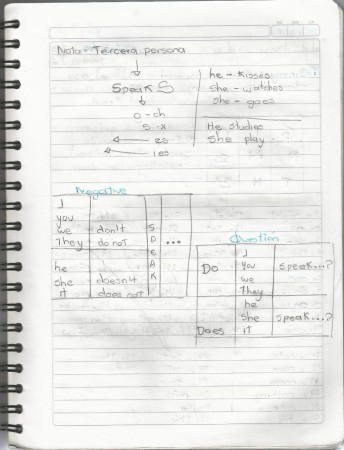 Nota - Tercera persona
Speak S
o - ch
s - x
es
ies
he - kisses
she - watches
she - goes
He studies
She play
Negative
I
you
we
They
don't
do not
he
she
it
doesn't
does not
SPEAK
...
Question
Do
I
you
we
They
speak...?
Does
he
she
it
speak...?